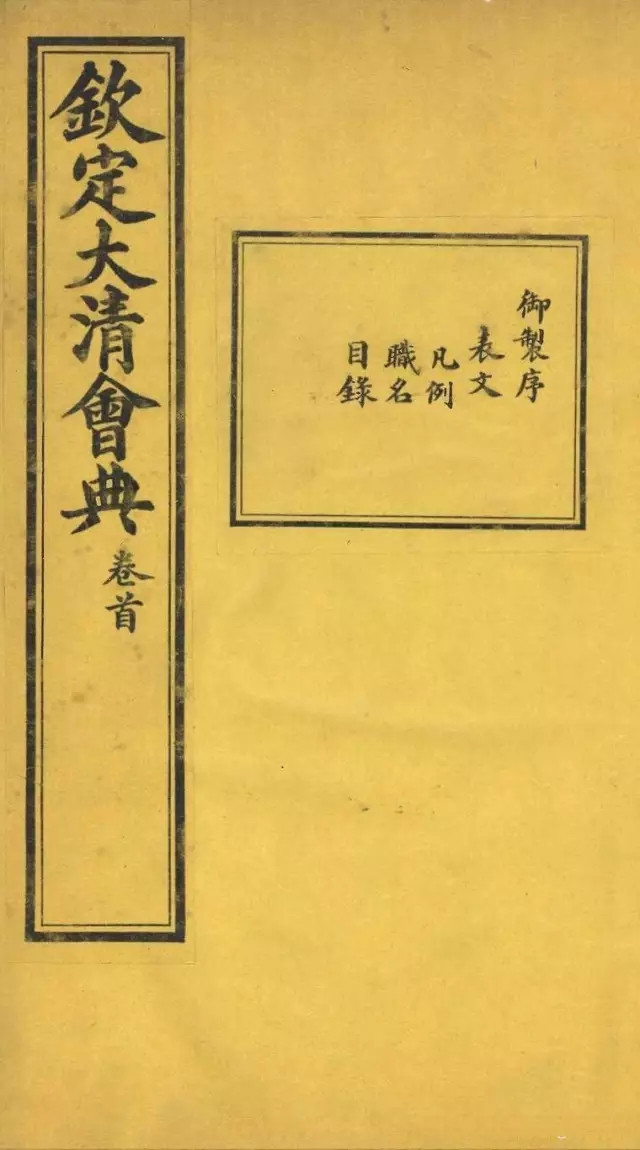 欽定大清會典 卷首
御製序
表文
凡例
職名
目錄